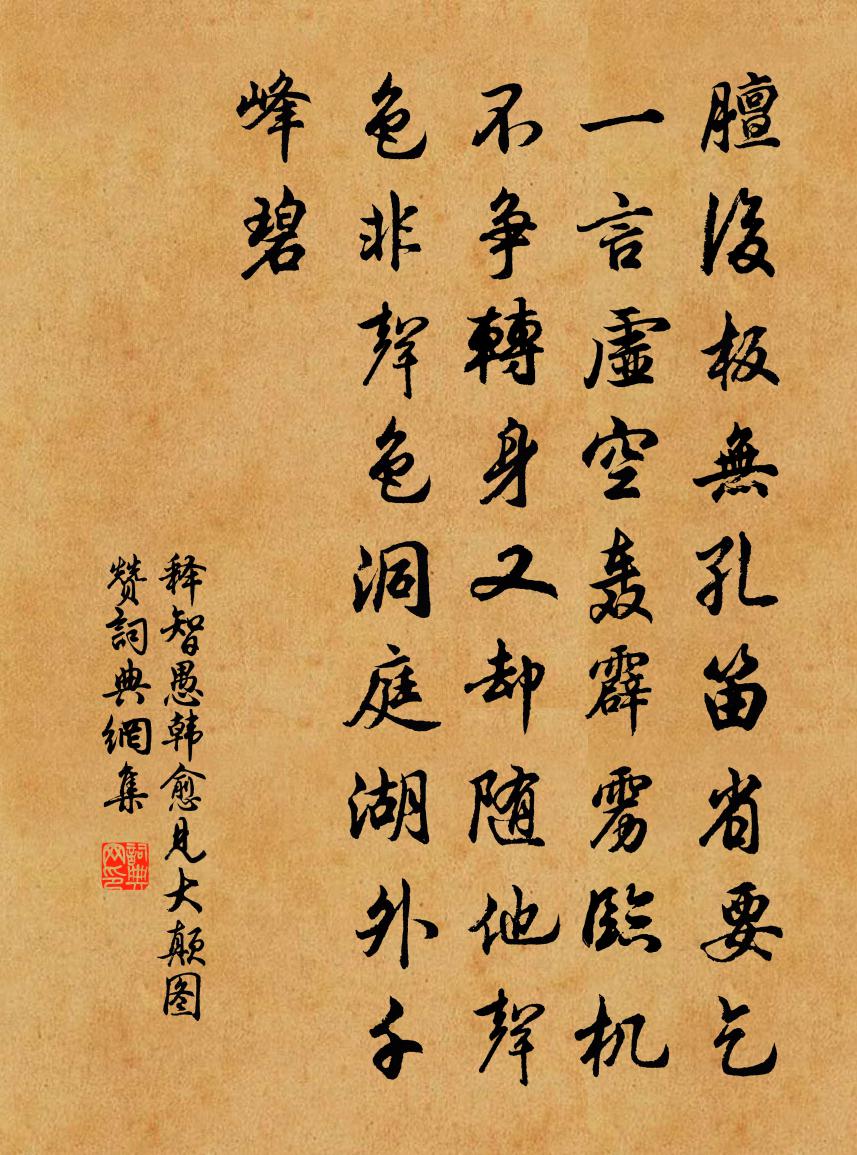 膻後板無孔笛省要乞
一言虛空轰霹雳臨机
不争轉身又却随他聲
色非聲色洞庭湖外千
峰碧
释智愚韩愈见大颠图
赞詞典網集
詞典
网印